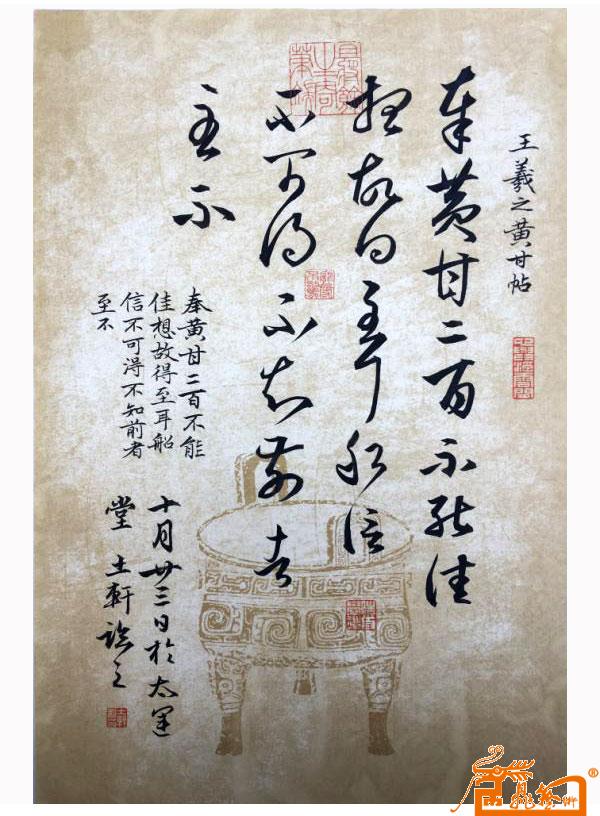 王羲之黄甘帖
奉黄甘二百不能佳
想故得至耳船信
不可得不知前者
至不
奉黄甘二百不能
佳想故得至耳船
信不可得不知前者
至不
十月廿三日於太運
堂 土軒